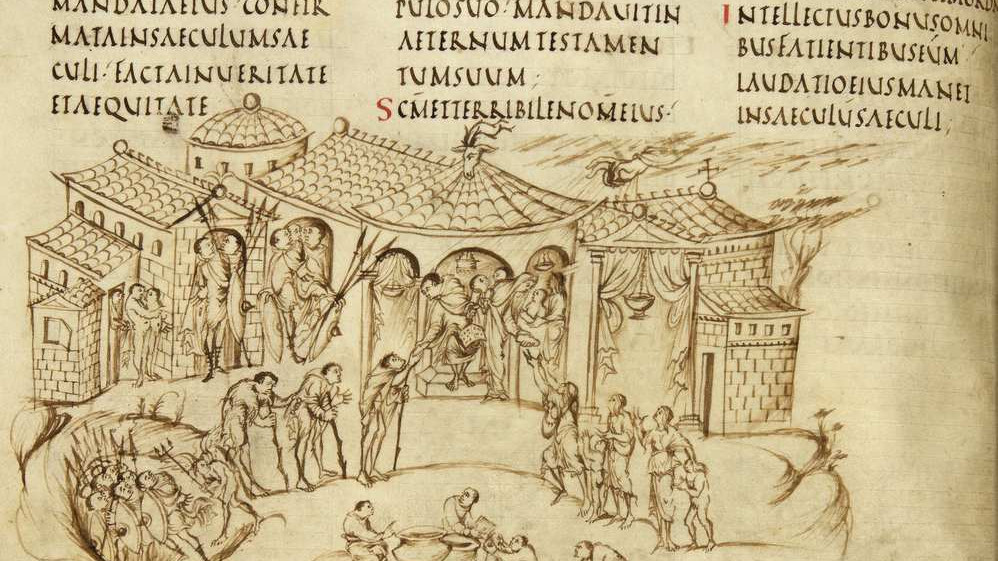 MANDATAEIUS·CONFIR
MATAINSAECULUMSAE
CULI·FACTAINUERITATE
ETAEQUITATE
PULOSUO·MANDAUITIN
AETERNUMTESTAMEN
TUMSUUM;
SCM̄ETTERRIBILENOM̄EIUS·
INTELLECTUSBONUSOMNI
BUSFATIENTIBUSEŪM
LAUDATIOEIUSMANET
INSAECULŪSAECULI;